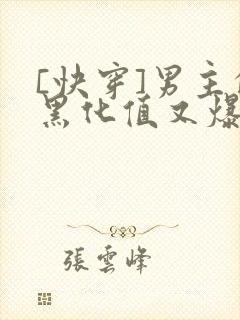 [快穿]男主
黑化值又爆
張雲峰